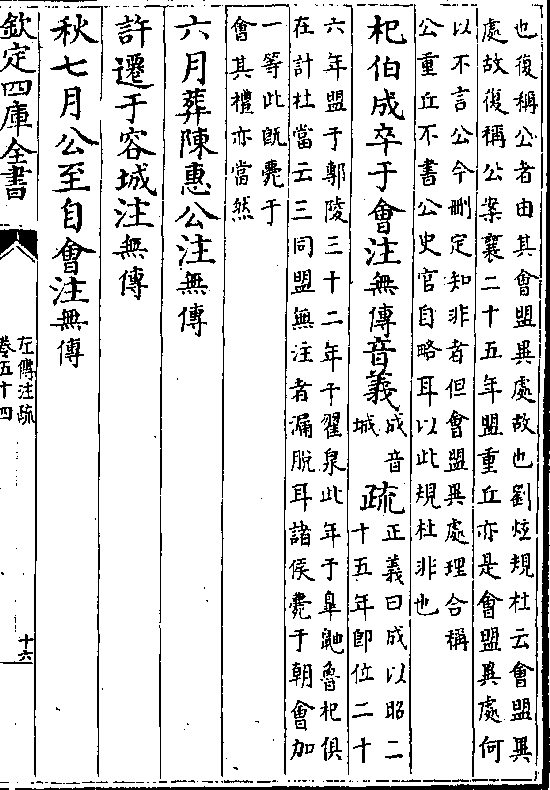 也復稱公者由其會盟異處故也劉炫規杜云會盟異
處故復稱公案襄二十五年盟重丘亦是會盟異處何
以不言公今刪定知非者但會盟異處理合稱
公重丘不書公史官自略耳以此規杜非也
杞伯成卒于會注無傳音義成音城疏正義曰成以昭二十五年即位二十
六年盟于鄟陵三十二年于翟泉此年于臯鼬魯杞俱
在計杜當云三同盟無注者漏脫耳諸侯薨于朝會加
一等此既薨于
會其禮亦當然
六月葬陳惠公注無傳
許遷于容城注無傳
秋七月公至自會注無傳
欽定四庫全書
左傳注疏
卷五十四
十六